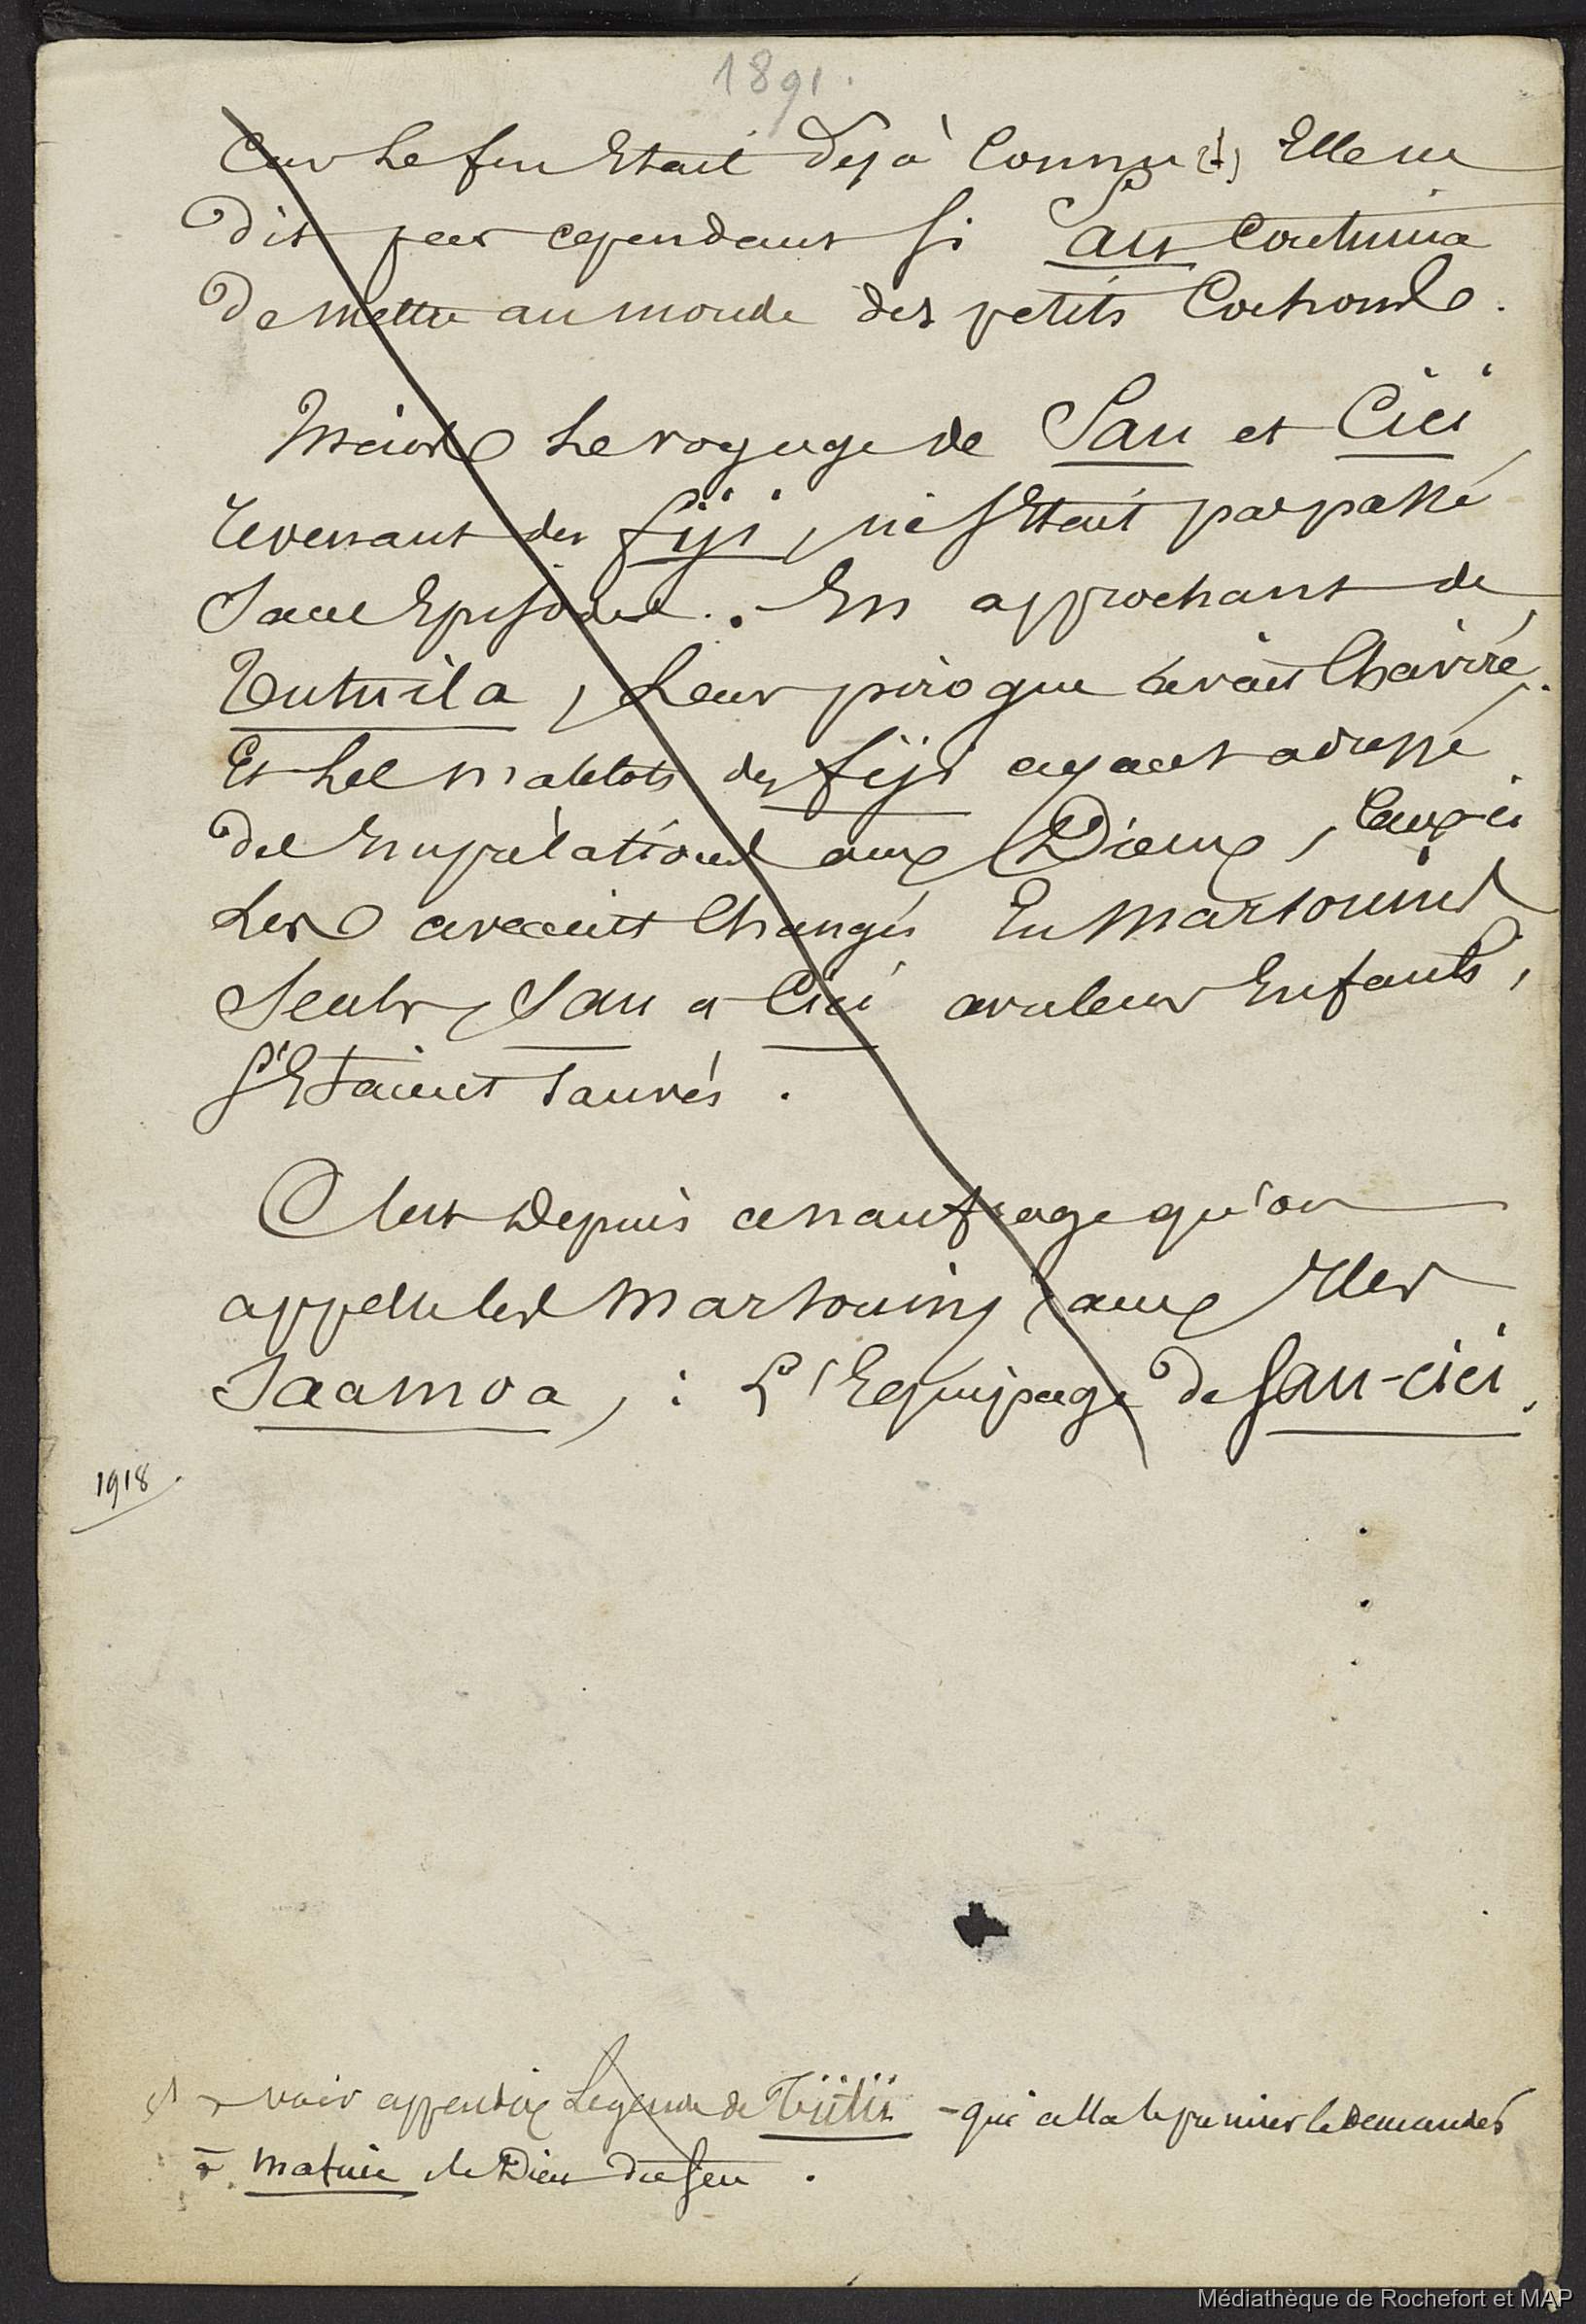 1891.
Car le feu Etait Déjà Connu (1) Elle ne
Dit pas cependant si Sau Continua
De mettre au monde des petits Cochons.
Mais le voyage de Sau et Cici
revenant des fiji, ne s'Etait pas passé
Sans Episodes. En approchant de
Tutuila, leur pirogue avait Chaviré.
Et les matelots des fiji ayant adressé
des imprécations aux Dieux, Ceux-ci
les avaient Changés En Marsouins
Seuls, Sau et Cici avec leurs Enfants,
s'Etaient sauvés.
C'est Depuis ce naufrage qu'on
appelle les Marsouins, aux Iles
Saamoa, : L'Equipage de Sau-cici.
1918.
voir appendix Légende de Tiitii - qui alla le premier le Demander
à Mafuie le Dieu du feu.
Médiathèque de Rochefort et MAP